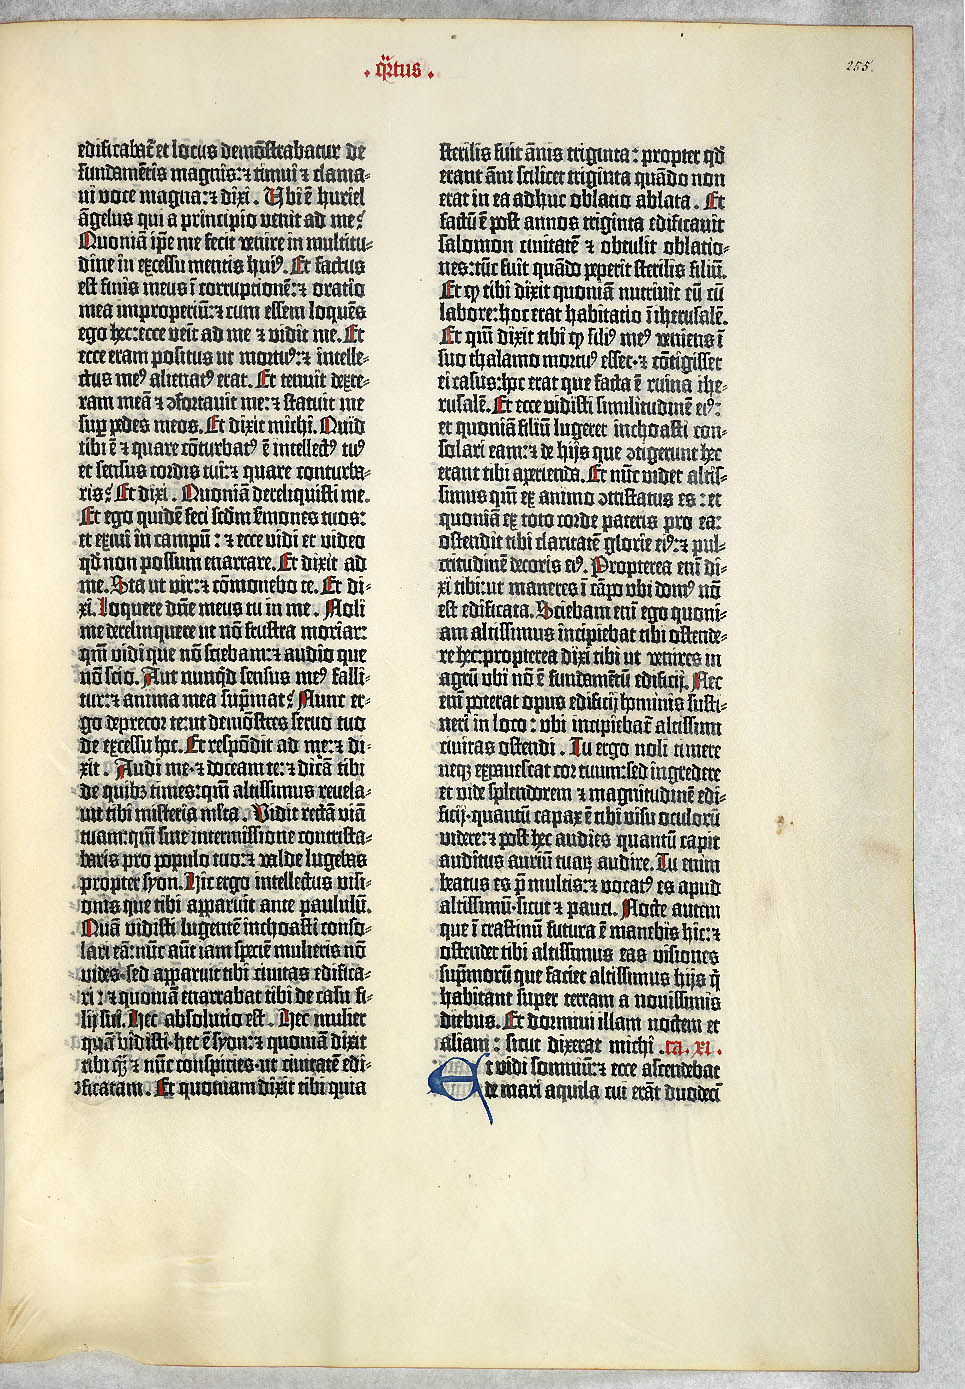 · q̃rtus ·
255.
edificabat̃ et locus demõstrabatur de
fundamẽtis magnis: ⁊ timui ⁊ clama-
ui voce magna: ⁊ dixi . Ubi ẽ huriel
ãgelus qui a principio venit ad me?
Quoniã ip̃e me fecit venire in multitu-
dine in excessu mentis huiꝰ. Et factus
est finis meus ĩ corruptionẽ: ⁊ oratio
mea improperiũ: ⁊ cum essem loquẽs
ego hec: ecce veĩt ad me ⁊ vidit me. Et
ecce eram positus ut mortuꝰ: ⁊ intelle-
ctus meꝰ alienatꝰ erat. Et tenuit dexte-
ram meã ⁊ ꝯfortauit me: ⁊ statuit me
sup̱ pedes meos. Et dixit michi. Quid
tibi ẽ ⁊ quare cõturbatꝰ ẽ intellectꝰ tuꝰ
et sensus cordis tui: ⁊ quare conturba-
ris? Et dixi . Quoniã dereliquisti me.
Et ego quidẽ feci scd̃m s̃mones tuos:
et exiui in campũ: ⁊ ecce vidi et video
qd̃ non possum enarrare. Et dixit ad
me. Sta ut vir: ⁊ cõmonebo te. Et di-
xi. Loquere dñe meus tu in me . Noli
me derelinquere ut nõ frustra moriar:
qm̃ vidi que nõ sciebam: ⁊ audio que
nõ scio. Aut nunqd̃ sensus meꝰ falli-
tur: ⁊ anima mea sup̃niat? Nunc er-
go deprecor te: ut demõstres seruo tuo
de excessu hoc. Et respõdit ad me: ⁊ di-
xit . Audi me · ⁊ doceam te: ⁊ dicã tibi
de quibꝫ times: qm̃ altissimus reuela-
uit tibi misteria ml̃ta . Vidit rectã viã
tuam: qm̃ sine intermissione contrista-
baris pro populo tuo: ⁊ valde lugebas
propter syon. Hic ergo intellectus visi-
onis que tibi apparuit ante paululũ.
Quã vidisti lugentẽ inchoasti conso-
lari eã: nũc aũt iam speciẽ mulieris nõ
vides · sed apparuit tibi ciuitas edifica-
ri: ⁊ quoniã enarrabat tibi de casu fi-
lij sui. Hec absolutio est . Hec mulier
quã vidisti · hec ẽ syon: ⁊ quoniã dixit
tibi qꝫ ⁊ nũc conspicies · ut ciuitatẽ edi-
ficatam. Et quoniam dixit tibi quia
sterilis fuit ãnis triginta: propter qd̃
erant ãni scilicet triginta quãdo non
erat in ea adhuc oblatio ablata . Et
factũ ẽ post annos triginta edificauit
salomon ciuitatẽ ⁊ obtulit oblatio-
nes: tũc fuit quãdo peperit sterilis filiũ.
Et ꝙ tibi dixit quoniã nutriuit eũ cũ
labore: hoc erat habitatio ĩ iherusalẽ.
Et qm̃ dixit tibi ꝙ filiꝰ meꝰ veniens ĩ
suo thalamo mortuꝰ esset · ⁊ cõtigisset
ei casus: hec erat que facta ẽ ruina ihe-
rusalẽ. Et ecce vidisti similitudinẽ eiꝰ:
et quoniã filiũ lugeret inchoasti con-
solari eam: ⁊ de hijs que ꝯtigerunt hec
erant tibi aperienda. Et nũc videt altis-
simus qm̃ ex animo ꝯtristatus es: et
quoniã ex toto corde pateris pro ea:
ostendit tibi claritatẽ glorie eiꝰ: ⁊ pul-
critudinẽ decoris eiꝰ. Propterea em̃ di-
xi tibi: ut maneres ĩ cãpo vbi domꝰ nõ
est edificata. Sciebam em̃ ego quoni-
am altissimus incipiebat tibi ostende-
re hec: propterea dixi tibi ut venires in
agrũ vbi nõ ẽ fundamẽtũ edificij. Nec
em̃ poterat opus edificij hominis susti-
neri in loco: vbi incipiebat̃ altissimi
ciuitas ostendi . Tu ergo noli timere
neqꝫ expauescat cor tuum: sed ingredere
et vide splendorem ⁊ magnitudinẽ edi-
ficij · quantũ capax ẽ tibi visu oculorũ
videre: ⁊ post hec audies quantũ capit
auditus auriũ tuaꝝ audire. Tu enim
beatus es p̃ multis: ⁊ vocatꝰ es apud
altissimũ · sicut ⁊ pauci. Nocte autem
que ĩ crastinũ futura ẽ manebis hic: ⁊
ostendet tibi altissimus eas visiones
sup̃morũ que faciet altissimus hijs q̃
habitant super terram a nouissimis
diebus. Et dormiui illam noctem et
aliam: sicut dixerat michi . ca. xi.
Et vidi somniũ: ⁊ ecce ascendebat
de mari aquila cui erãt duodeci